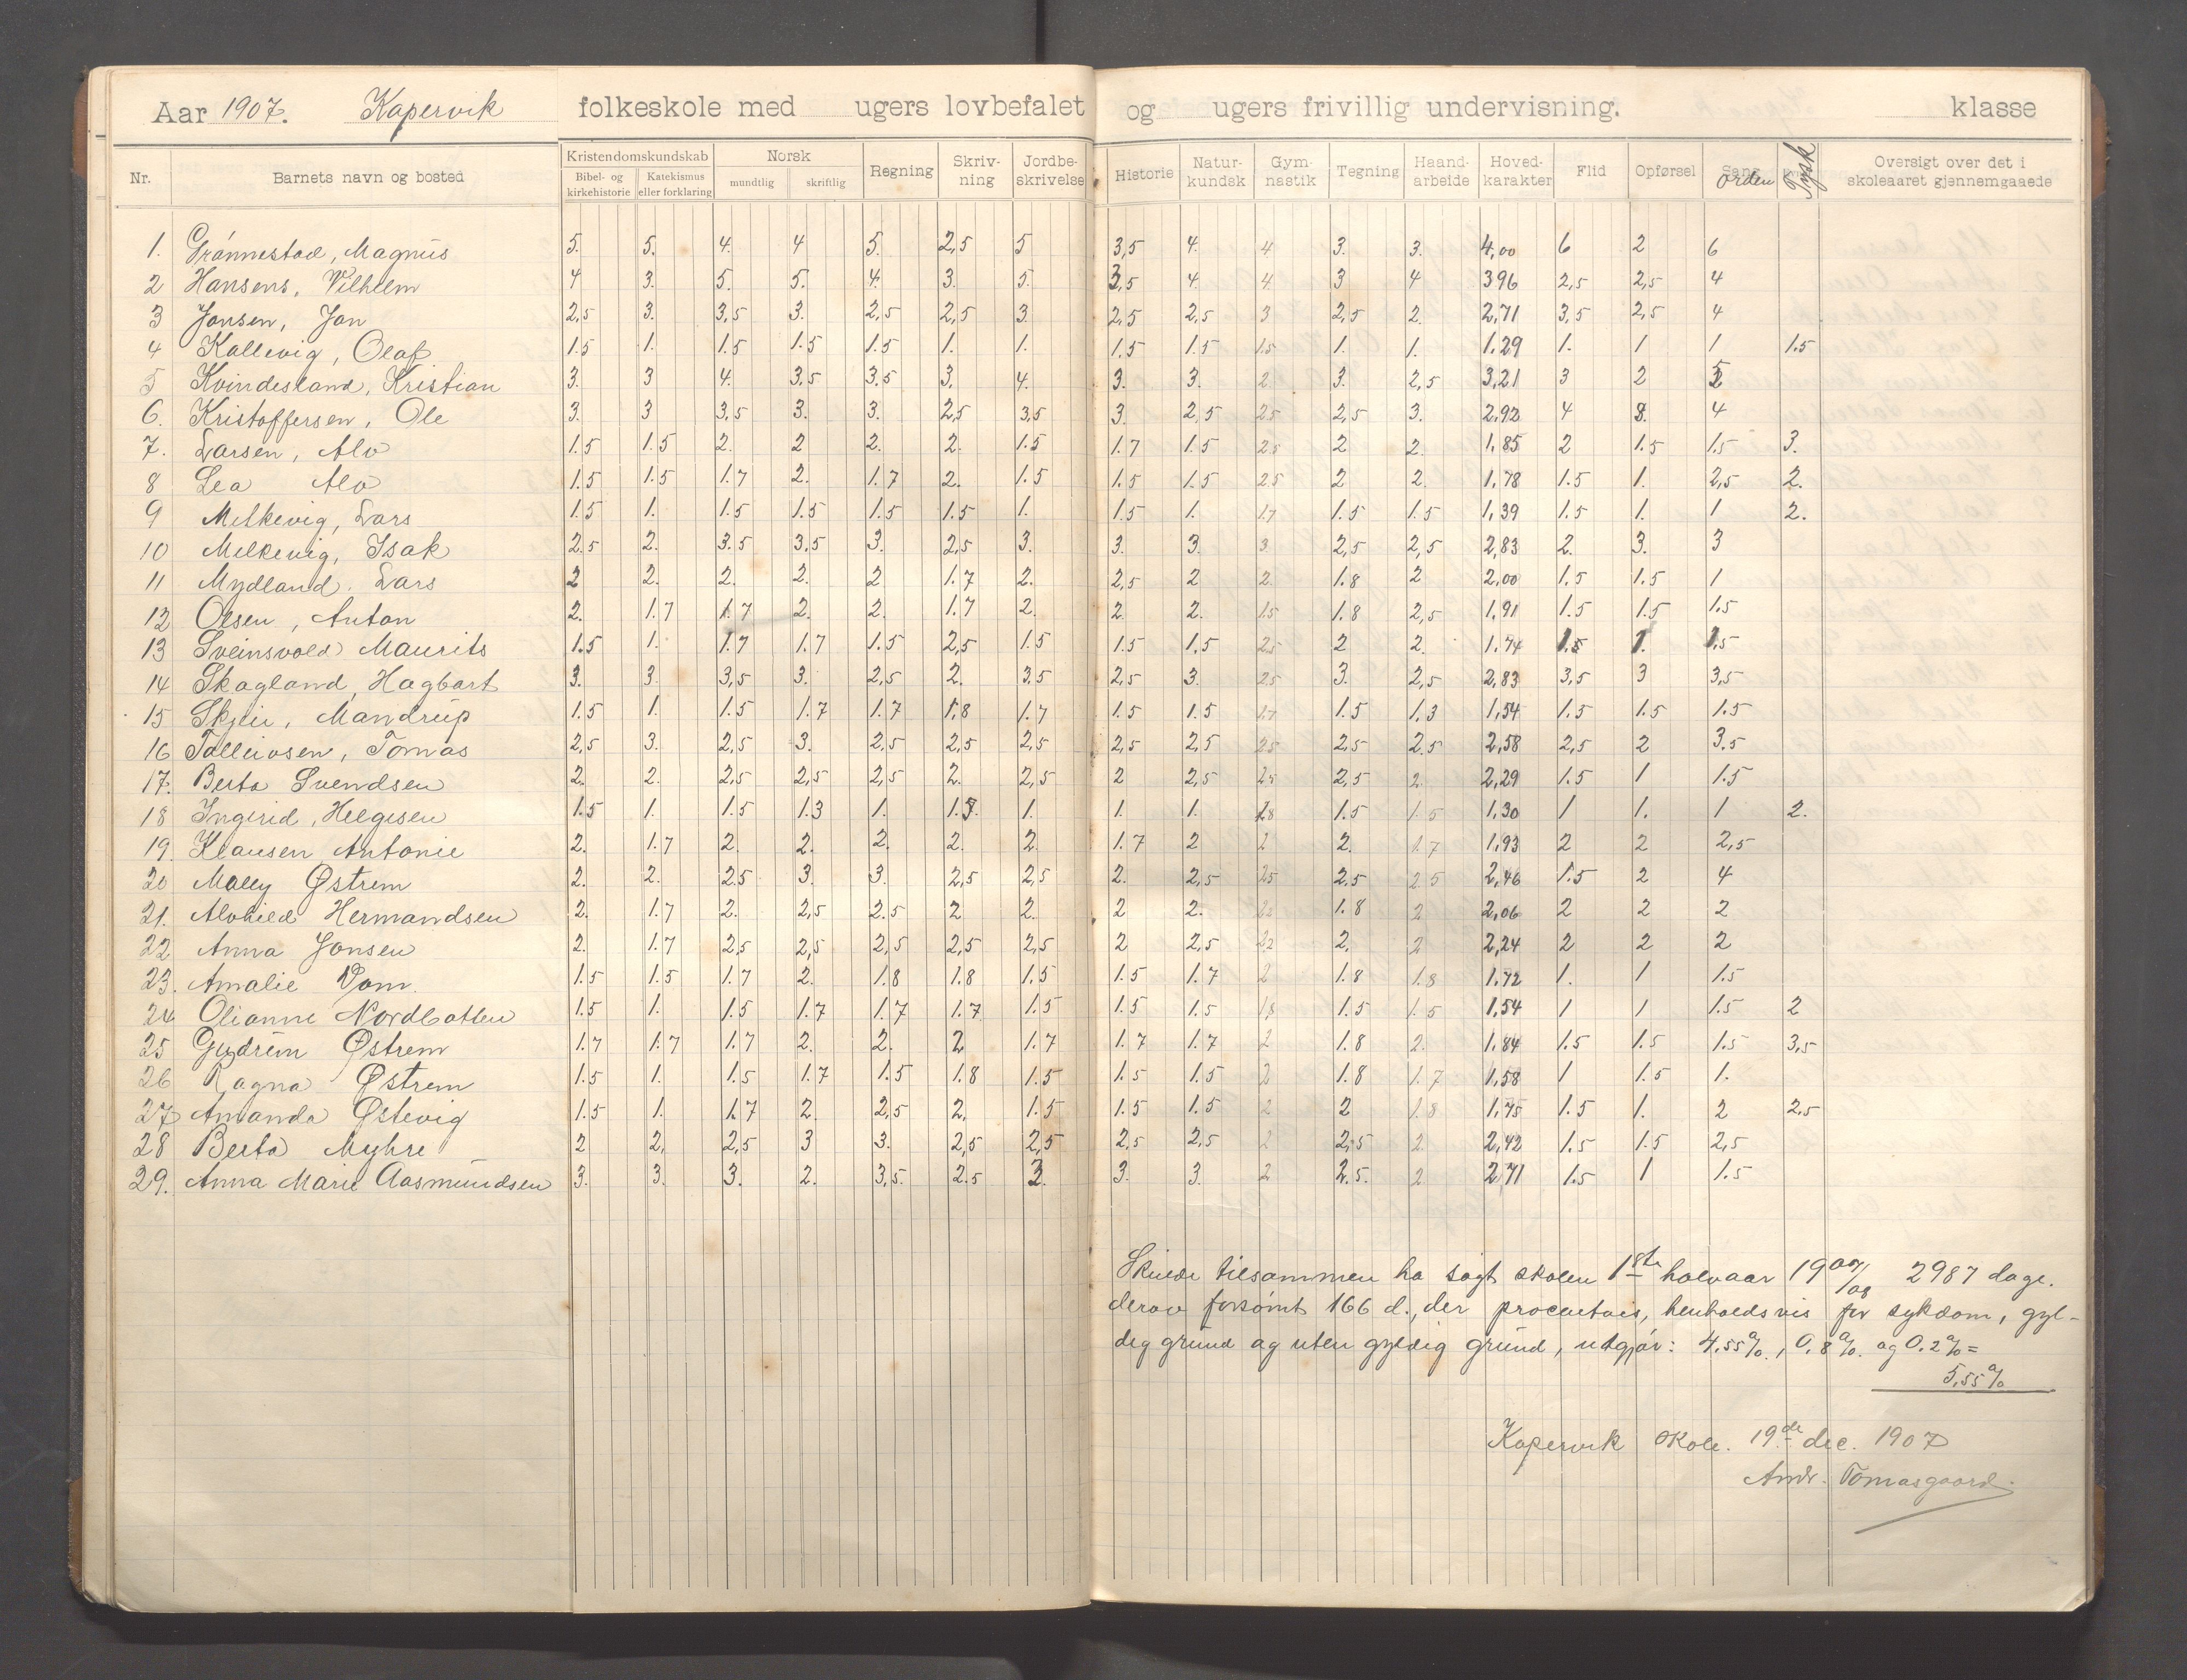 Aar 1907. Kopervik folkeskole med ugers lovbefalet og ugers frivillig undervisning. klasse
Nr. Barnets navn og bosted Kristendomskundskab Norsk Regning Skriv- ning Jordbe- skrivelse Historie Natur- kundsk Gym- nastik Tegning Haand- arbeide Hoved- karakter Flid Opførsel Sang Orden Tysk Oversigt over det i skoleaaret gjennemgaaede
Bibel- og kirkehistorie Katekismus eller forklaring mundtlig skriftlig
1. Grønnestad, Magnus 5. 5. 4. 4 5. 2,5 5 3,5 4. 4 3. 3. 4,00 6 2 6
2 Hansens, Vilhelm 4 3. 5. 5. 4. 3. 5. 3,5 4. 4 3 4 3 96 2,5 2,5 4
3 Jonsen, Jon 2,5 3. 3,5 3. 2,5 2,5 3. 2,5 2,5 3 2,5 2. 2,71 3,5 2,5 4
4 Kallevig, Olaf 1.5 1. 1.5 1.5 1.5 1. 1. 1.5 1.5 1.5 1. 1. 1.29 1. 1 1 1.5
5 Kvindesland, Kristian 3. 3 4. 3,5 3.5 3. 4. 3. 3. 2. 3. 2,5 3,21 3 2
6. Kristoffersen, Ole 3. 3 3,5 3. 3. 2,5 3,5 3. 2,5 2,5 2,5 3. 2,92 4 8. 4
7. Larsen, Alv 1.5 1.5 2. 2 2. 2. 1.5 1.7 1.5 2,5 2 2. 1,85 2 1.5 1.5 3.
8 Lea Alv 1.5 1.5 1.7 2. 1.7 2. 1.5 1.5 1.5 2,5 2 2. 1,78 1.5 1. 2,5 2.
9 Melkevig, Lars 1.5 1. 1.5 1.5 1.5 1.5 1. 1.5 1. 1.7 1.5 1.5 1,39 1.5 1. 1 2.
10 Melkevig, Isak 2.5 2. 3.5 3,5 3. 2,5 3. 3. 3. 3. 2,5 2,5 2,83 2. 3. 3
11 Mydland. Lars 2 2. 2. 2. 2 1.7 2. 2,5 2 2. 1.8 2 2,00 1.5 1.5 1
12 Olsen, Anton 2. 1.7 1.7 2. 2. 1.7 2. 2. 2. 1.5 1.8 2,5 1,91 1.5 1.5 1.5
13 Sveinsvold Maurits 1.5 1. 1.7 1.7 1.5 2,5 1.5 1.5 1,5 2,5 2 2. 1.74 1.5 1. 1,5
14 Skagland, Hagbart 3. 3. 3,5 3. 2,5 2. 3.5 2,5 3. 2,5 3. 2,5 2,83 3,5 3 3,5
15 Skjeie, Mandrup 1.5 1. 1.5 1.7 1.7 1,8 1.7 1.5 1.5 1.7 1.5 1.3 1,54 1.5 1.5 1.5
16 Tolleivsen, Tomas 2,5 3. 2,5 3. 2,5 2,5 2,5 2,5 2,5 2,5 2,5 2.5 2,58 2,5 2 3.5
17. Berta Svendsen 2. 2. 2,5 2,5 2,5 2. 2,5 2 2,5 2,5 2,5 2. 2,29 1.5 1 1.5
18 Ingerid, Helgesen 1.5 1. 1.5 1.3 1. 1. 1. 1. 1.5 1.5 1,30 1 1. 1 2.
19. Klausen Antonie 2. 1.7 2. 2. 2. 2. 2. 1.7 2 2 2. 1.7 1,93 2 2 2,5
20 Mally Østrem 2. 2. 2.5 3. 3. 2,5 2,5 2. 2,5 2,5 2.5 2.5 2,46 1.5 2 4
21. Alvhild Hermandsen 2. 1.7 2. 2,5 2.5 2 2. 2 2. 2,2 1.8 2 2,06 2 2 2
22 Anna Jonsen 2. 1.7 2,5 2,5 2,5 2,5 2,5 2 2,5 2,2 2. 2 2,24 2 2 2
23. Amalie Vom. 1.5 1.5 1.7 2. 1.8 1.8 1.5 1.5 1.7 2 1.8 1.8 1.72 1. 1 1.5
24 Olianne Nordbotten 1.5 1. 1.5 1.7 1.7 1.7 1.5 1.5 1.5 1,8 1.5 1.5 1,54 1 1 1.5 2
25 Gudrun Østrem 1.7 1.7 1.7 2. 2. 2 1.7 1.7 1.7 2 1.8 2. 1.84 1.5 1.5 1.5 3,5
26 Ragna Østrem 1.5 1. 1.5 1.7 1.5 1.8 1.5 1.5 1.5 2 1.8 1.7 1,58 1 1.5 1.
27 Amanda Østevig 1.5 1. 1.7 2. 2,5 2. 1.5 1.5 1.5 2 2 1.8 1,75 1.5 1. 2 2,5
28 Berta Myhre 2 2, 2,5 3 3. 2,5 2,5 2,5 2,5 2 2,5 2. 2,42 1.5 1.5 2,5
29. Anna Marie Aasmundsen 3. 3. 3. 2. 3,5. 2.5 3. 3. 2 2.5. 2 2,71 1.5 1 1.5
Skulde tilsammen ha søgt skolen 1ste halvaar 1907/08 2987 dage.
derav forsømt 166 d., der procentvis, henholdsvis for sykdom, gyl-
dig grund og uten gyldig grund, utgjør: 4.55%, 0,8%. og 0.2% =
5,55%
Kopervik skole. 19de dec. 1907
Andr. Tomasgaard.